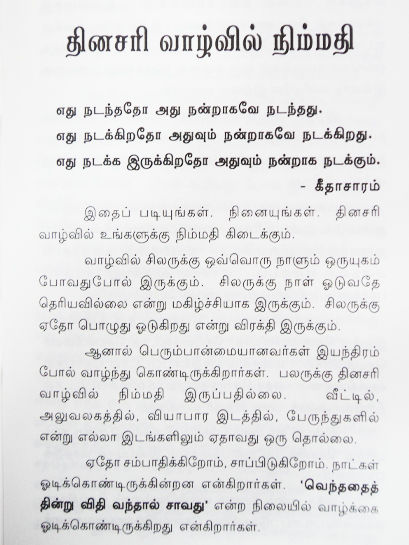 தினசரி வாழ்வில் நிம்மதி
எது நடந்ததோ அது நன்றாகவே நடந்தது.
எது நடக்கிறதோ அதுவும் நன்றாகவே நடக்கிறது.
எது நடக்க இருக்கிறதோ அதுவும் நன்றாக நடக்கும்.
- கீதாசாரம்
இதைப் படியுங்கள். நினையுங்கள். தினசரி
வாழ்வில் உங்களுக்கு நிம்மதி கிடைக்கும்.
வாழ்வில் சிலருக்கு ஒவ்வொரு நாளும் ஒருயுகம்
போவதுபோல் இருக்கும். சிலருக்கு நாள் ஓடுவதே
தெரியவில்லை என்று மகிழ்ச்சியாக இருக்கும். சிலருக்கு
ஏதோ பொழுது ஓடுகிறது என்று விரக்தி இருக்கும்.
ஆனால் பெரும்பான்மையானவர்கள் இயந்திரம்
போல் வாழ்ந்து கொண்டிருக்கிறார்கள். பலருக்கு தினசரி
வாழ்வில் நிம்மதி இருப்பதில்லை. வீட்டில்,
அலுவலகத்தில், வியாபார இடத்தில், பேருந்துகளில்
என்று எல்லா இடங்களிலும் ஏதாவது ஒரு தொல்லை.
ஏதோ சம்பாதிக்கிறோம், சாப்பிடுகிறோம். நாட்கள்
ஓடிக்கொண்டிருக்கின்றன என்கிறார்கள். 'வெந்ததைத்
தின்று விதி வந்தால் சாவது' என்ற நிலையில் வாழ்க்கை
ஓடிக்கொண்டிருக்கிறது என்கிறார்கள்.